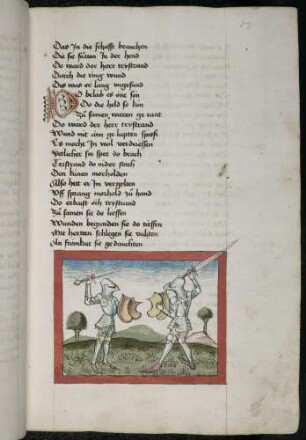 Das In die schäfft brauchen
Die sie fürten In der hend
Do ward der herr trystrand
Durch die ring wund
Des was er lang ungesund
Do belaib es one sen
Do die held so kün
Zu samen waren ge rant
Do ward der herr trystrand
Wund mit ainn ge lupten spieß
Es mocht In wol verdriessen
Yetlicher sin sper do brach
Trystrand do nider stach
Den küen morholden
Also hett er In vergolten
Uff sprang morhold zu hand
Do erbaist och trystrand
Zu samen sie do lieffen
Wunden begunden sie do tieffen
Mit schwerten schlegen sie vachten
An fromkait sie gedauchten